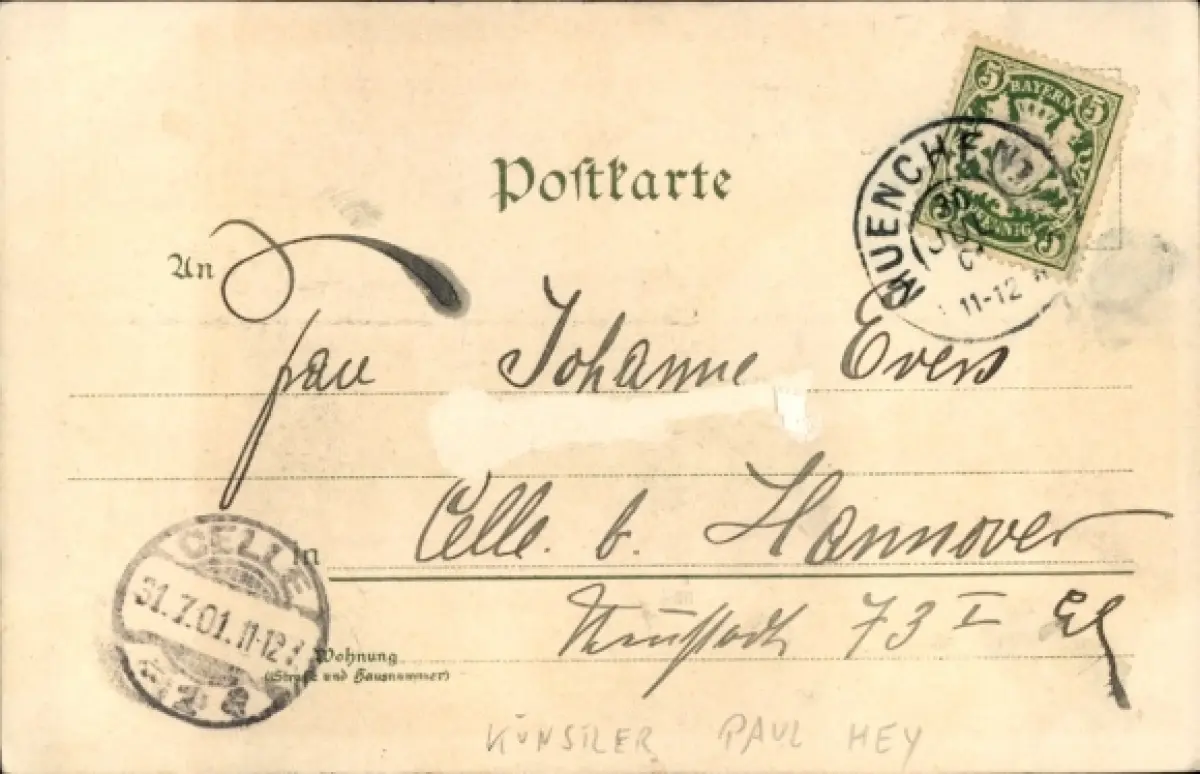 Postkarte
5 BAYERN 5
PFENNIG 5
MUENCHEN
30 JUL
11-12
An
Frau Johanne Evers
in Celle b. Hannover
CELLE
31.7.01.11-12
Neustadt 73 I
Wohnung
(Straße und Hausnummer)
KÜNSTLER PAUL HEY